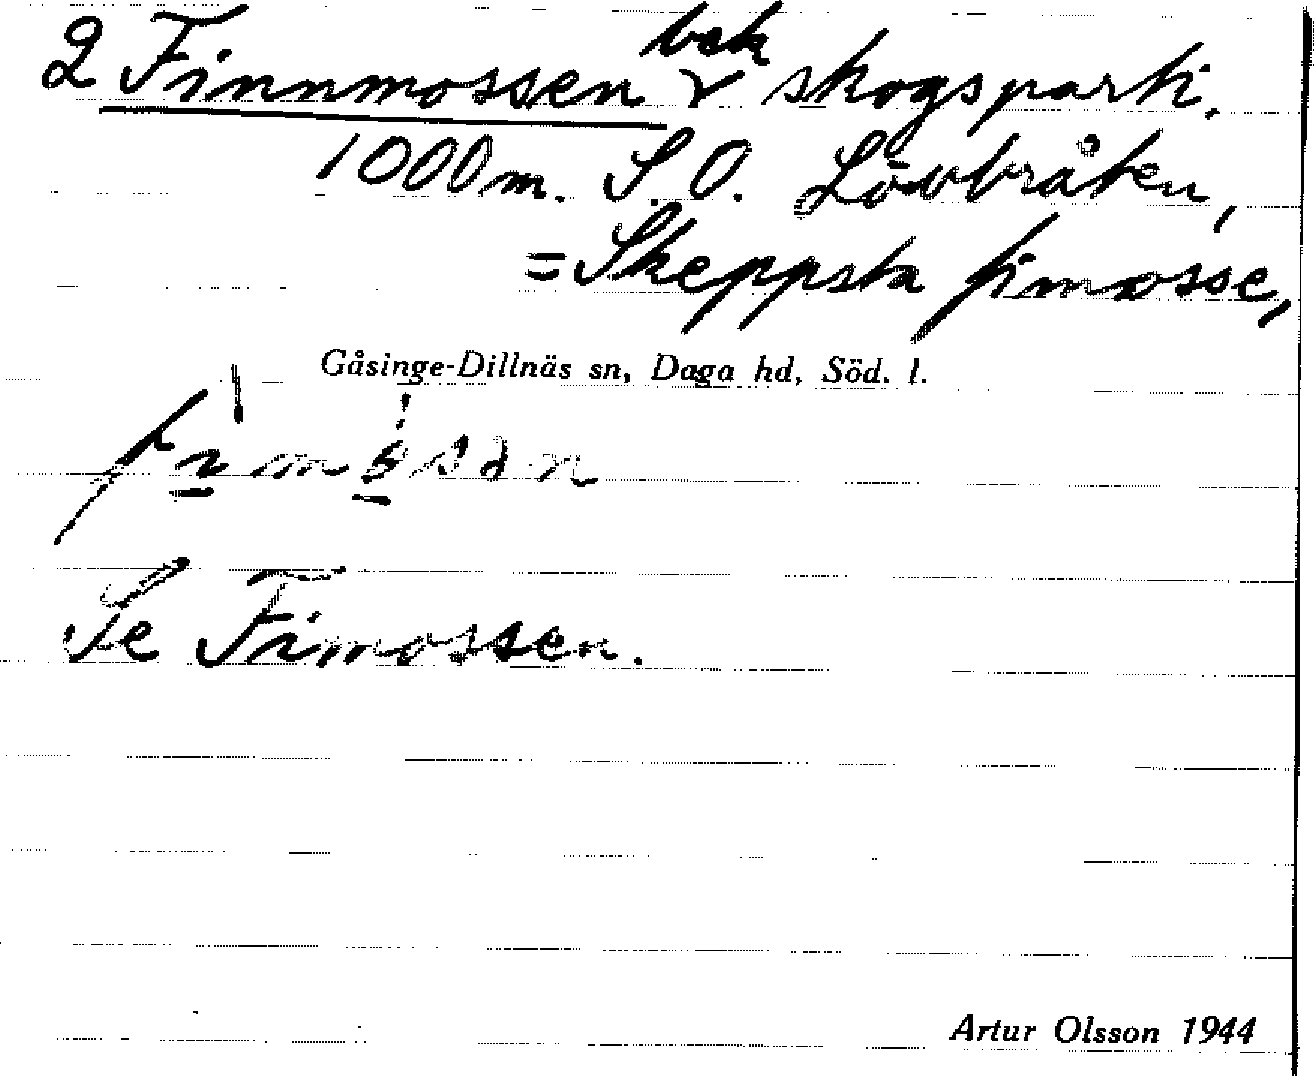 2 Finnmossen bek skogsparti.
1000 m. S.O. Lövbråten,
= Skeppsta fimosse,
Gåsinge-Dillnäs sn, Daga hd, Söd. l.
Se Fimossen.
Artur Olsson 1944